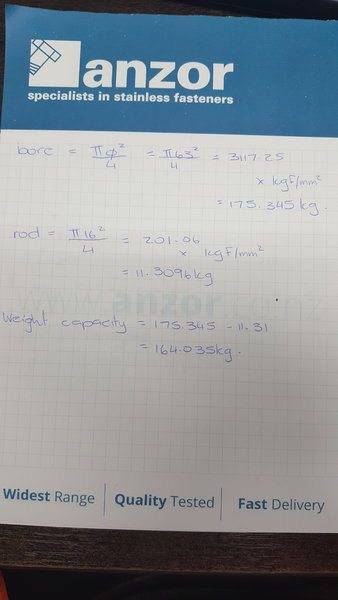 anzor
specialists in stainless fasteners
bore = πφ²/4 = π63²/4 = 3117.25
× kgf/mm²
= 175.345 kg.
rod = π16²/4 = 201.06
× kgf/mm²
= 11.3096kg
weight capacity = 175.345 - 11.31
= 164.035kg.
Widest Range | Quality Tested | Fast Delivery